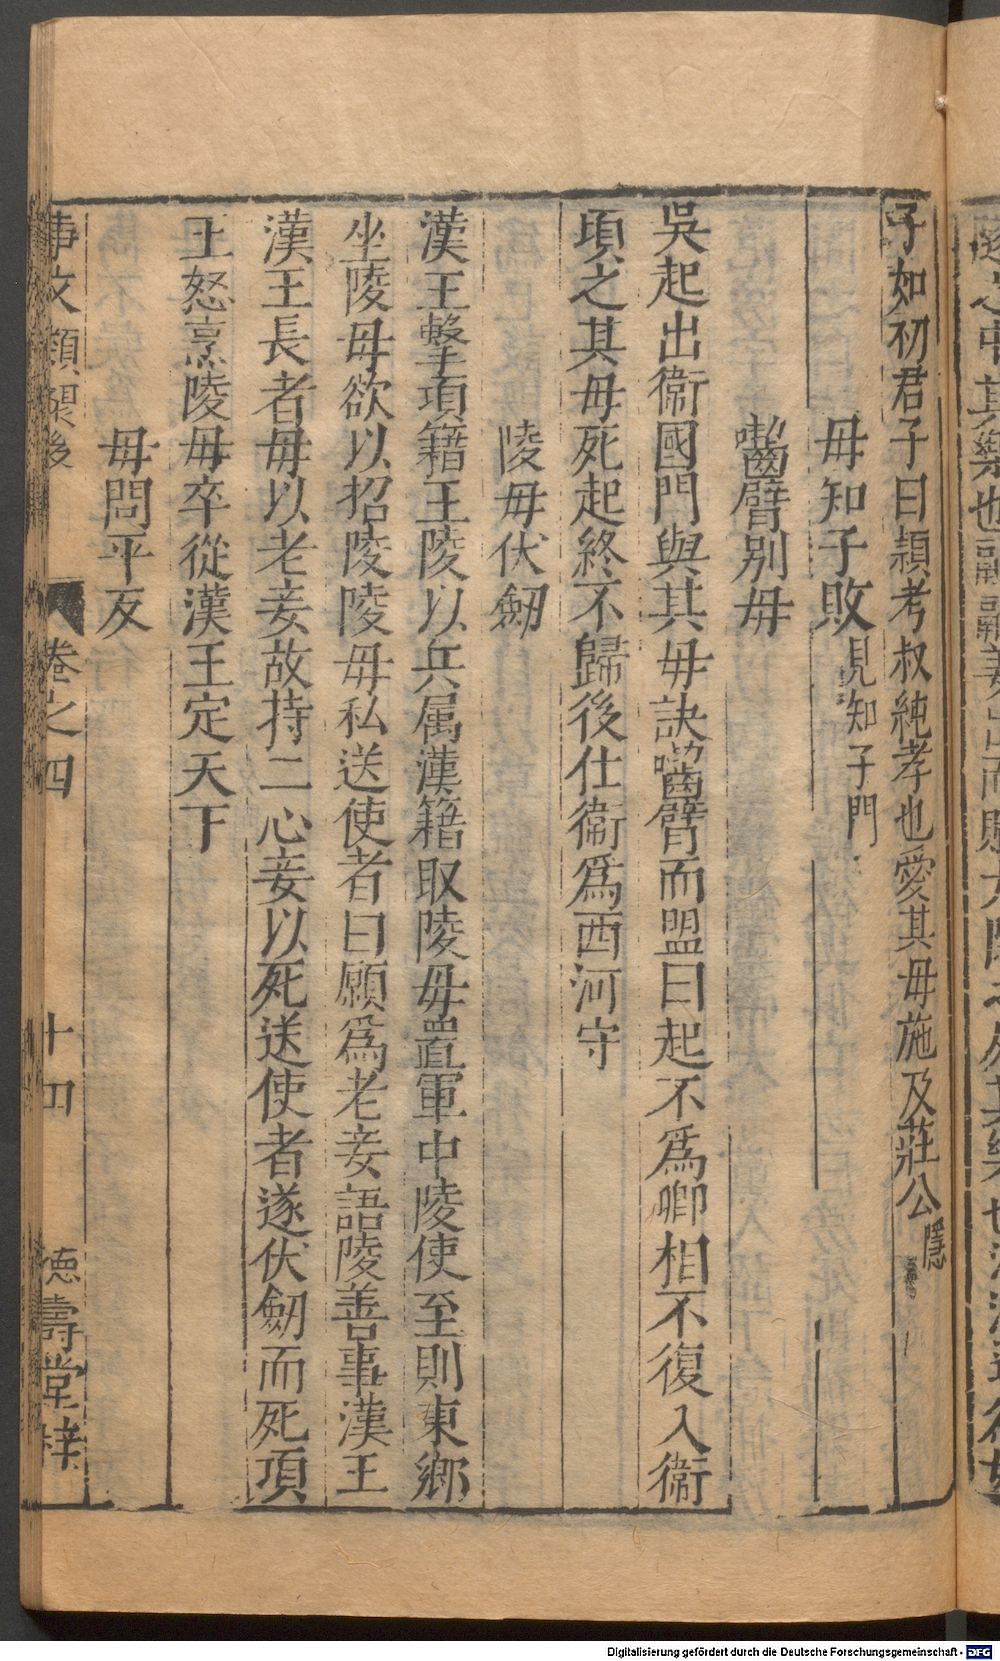 子如初君子曰頴考叔純孝也愛其母施及莊公隱
母知子敗見知子門
嚙臂別母
吳起出衞國門與其母訣嚙臂而盟曰起不爲卿相不復入衞
頃之其母死起終不歸後仕衞爲西河守
陵母伏劒
漢王擊項籍王陵以兵属漢籍取陵母置軍中陵使至則東鄉
坐陵母欲以招陵陵母私送使者曰願爲老妾語陵善事漢王
漢王長者母以老妾故持二心妾以死送使者遂伏劒而死項
王怒烹陵母卒從漢王定天下
母問平反
事文類聚後 卷之四 十四 德壽堂梓
Digitalisierung gefördert durch die Deutsche Forschungsgemeinschaft - DFG